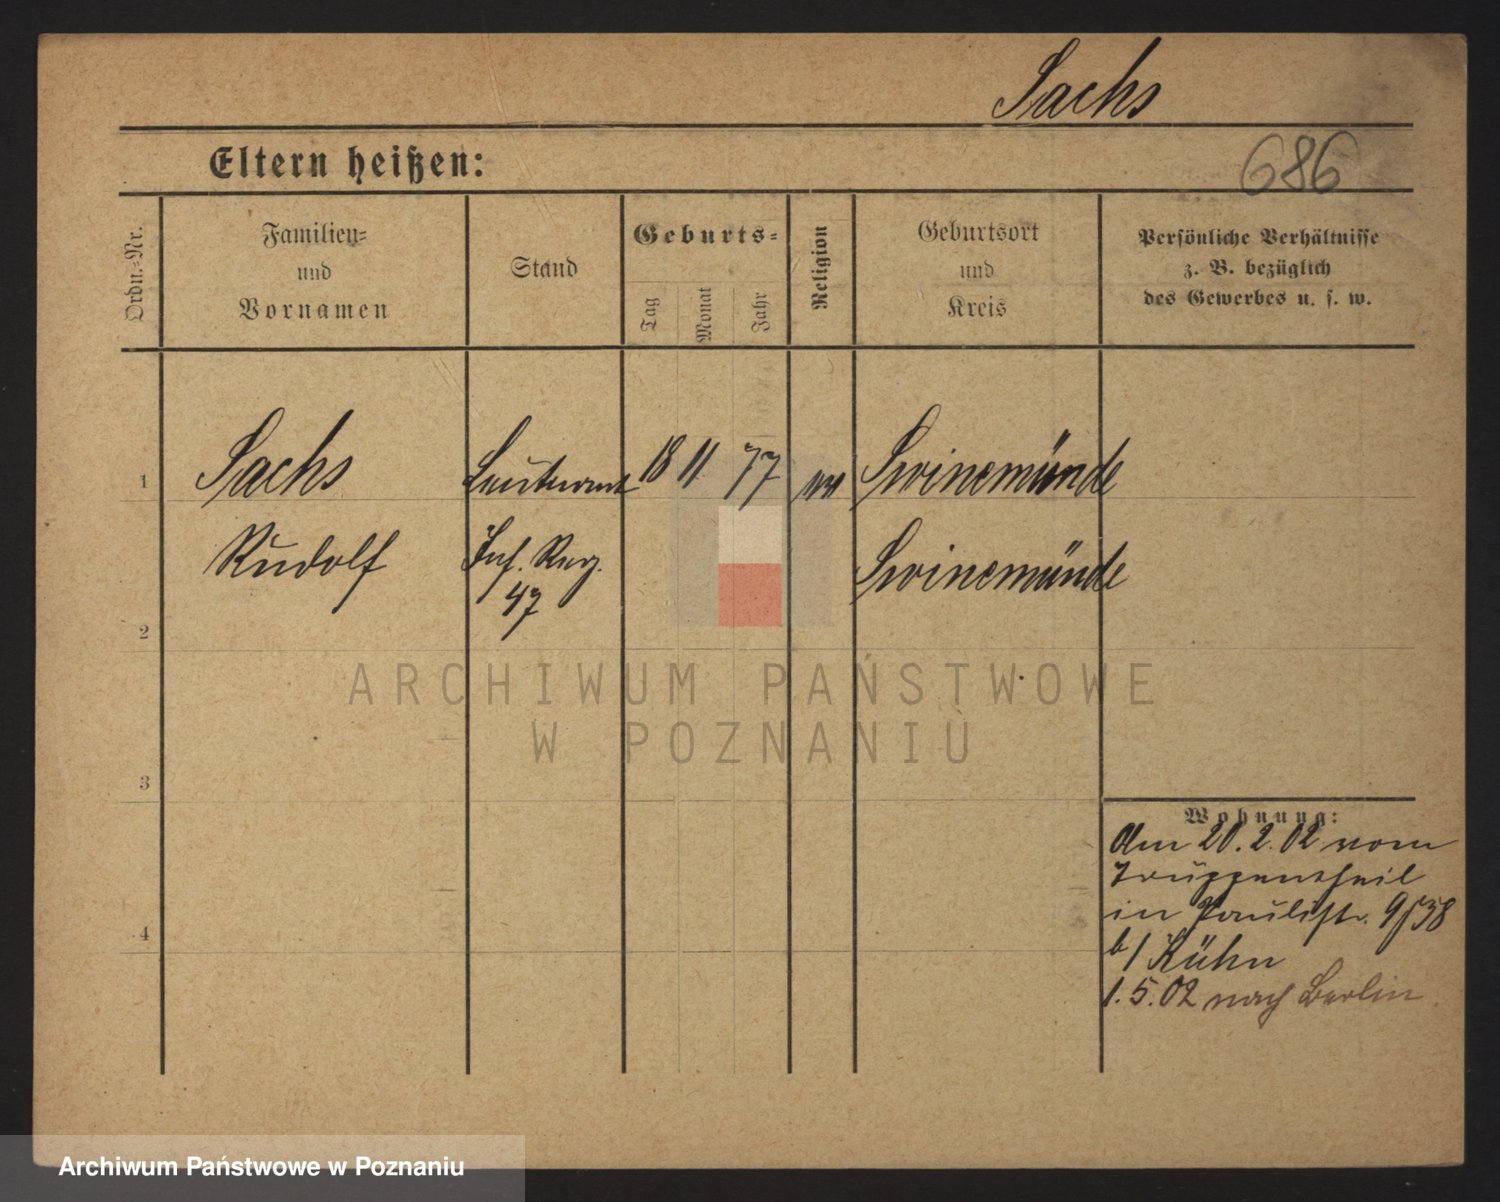 Sachs
Eltern heißen:
686
Ordn.-Nr.
Familien-
und
Vornamen
Stand
Geburts-
Tag
Monat
Jahr
Religion
Geburtsort
und
Kreis
Persönliche Verhältnisse
z. B. bezüglich
des Gewerbes u. s. w.
1
Sachs
Leutnant
18 11 77
Swinemünde
Rudolf
Inf. Reg.
47
Swinemünde
2
ARCHIWUM PAŃSTWOWE
W POZNANIU
3
Wohnung:
Am 20.2.02 vom
Truppentheil
in Paulistr. 9/38
b/ Kühn
1.5.02 nach Berlin.
4
Archiwum Państwowe w Poznaniu